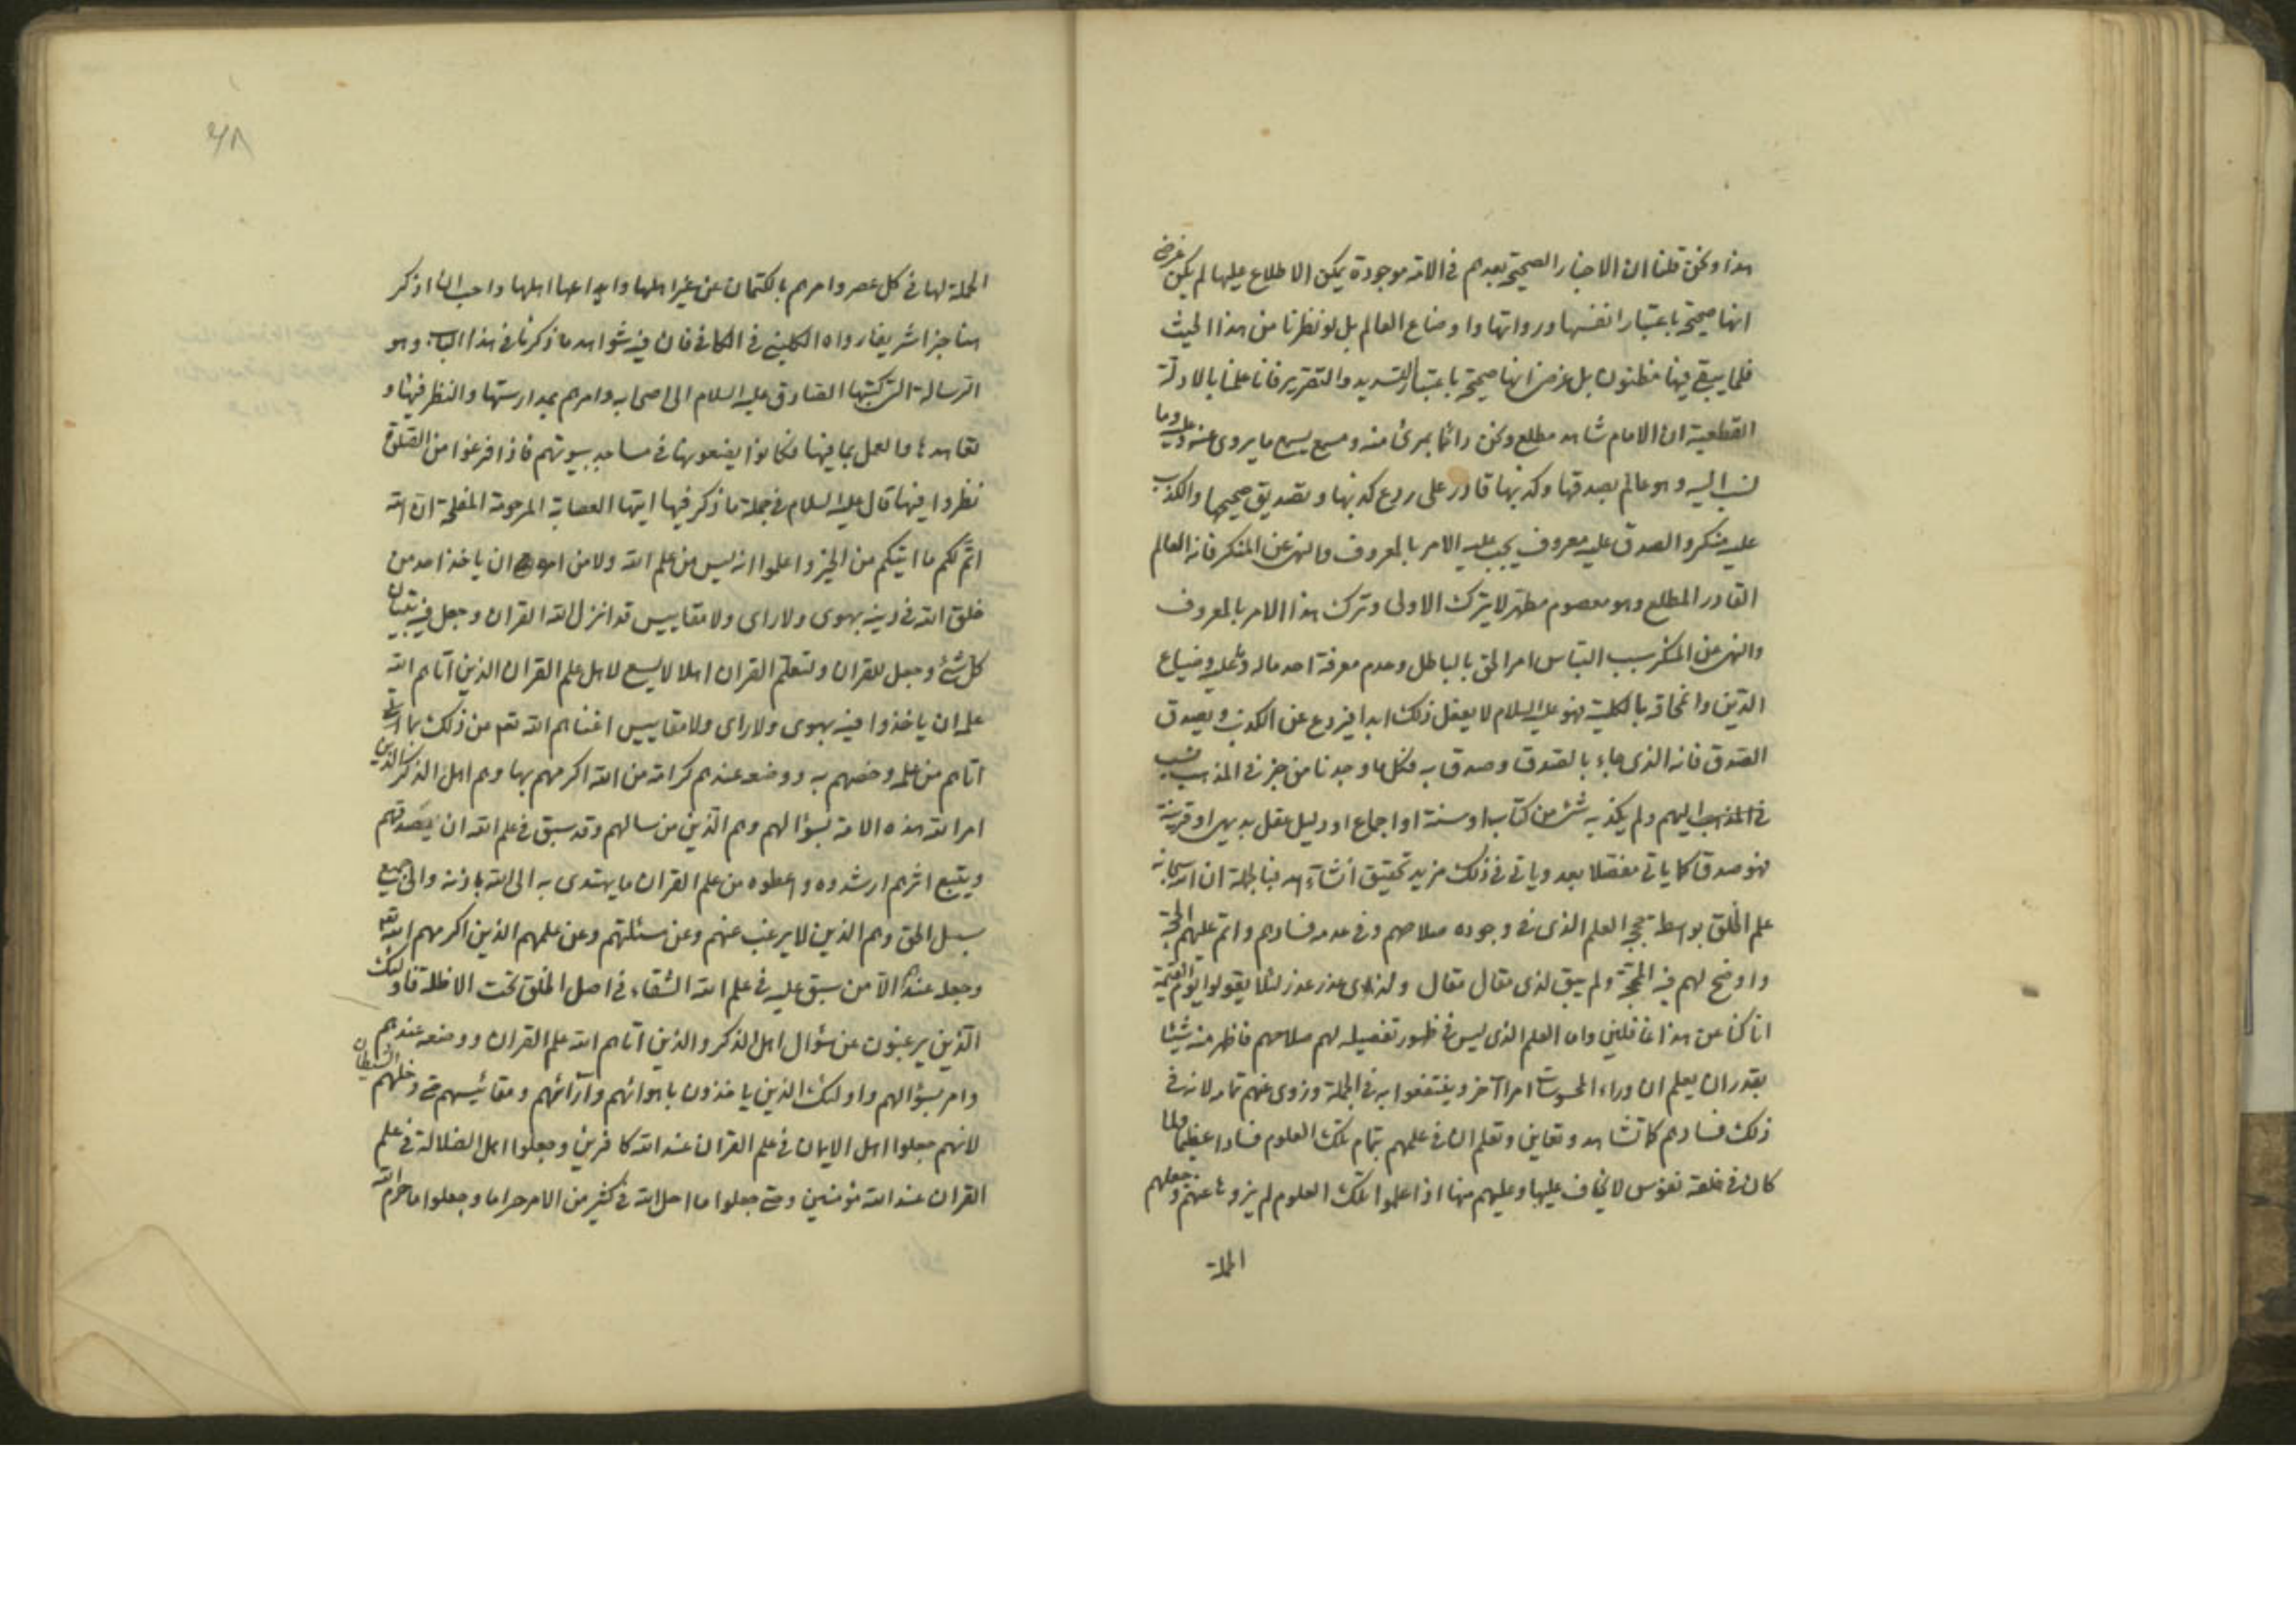 هذا ونحن قلنا ان الاخبار الصحيحة بعدهم في الامة موجودة يمكن الاطلاع عليها لم يكن غرضي
انها صحيحة باعتبار انفسها ورواتها واوضاع العالم بل لو نظرنا من هذا الحيث
فلما يبقي فيها مظنون بل غرضي انها صحيحة باعتبار التسديد والتقرير فانا علمنا بالادلة
القطعية ان الامام شاهد مطلع ونحن دائما بمرئ منه ومسمع يسمع ما يروى عنه وعليه وما
نسب اليه وهو عالم بصدقها وكذبها قادر على ردع كذبها وتصديق صحيحها والكذب
عليه منكر والصدق عليه معروف يجب عليه الامر بالمعروف والنهي عن المنكر فانه العالم
القادر المطلع وهو معصوم مطهر لا يترك الاولى وترك هذا الامر بالمعروف
والنهي عن المنكر سبب التباس امر الحق بالباطل وعدم معرفة احد ماله وعليه وضياع
الدين وانمحاقه بالكلية فهو عليه السلام لا يعقل ذلك ابدا فيردع عن الكذب ويصدق
الصدق فانه الذي جاء بالصدق وصدق به فكل ما وجدنا من خبر في المذهب نسب
في المذهب اليهم ولم يكذبه شئ من كتاب او سنة او اجماع او دليل عقل بديهي او قرينة
فهو صدق كما ياتي مفصلا بعد وياتي في ذلك مزيد تحقيق انشاء الله فبالجملة ان الله سبحانه
علم الخلق بواسطة حججه العلم الذي في وجوده صلاحهم وفي عدمه فسادهم واتم عليهم الحجة
واوضح لهم فيه المحجة ولم يبق لذي مقال مقال ولذي عذر عذر لئلا يقولوا يوم القيمة
انا كنا عن هذا غافلين واما العلم الذي ليس في ظهور تفصيله لهم صلاحهم فاظهر منه شيئا
بقدر ان يعلم ان وراء المحسوسات امرا آخر وينتفعوا به في الجملة وزوى عنهم تمامه لان في
ذلك فسادهم كما تشاهد وتعاين وتعلم ان في علمهم بتمام تلك العلوم فسادا عظيما ولما
كان في خلقه نفوس لا يخاف عليها وعليهم منها اذا علموا تلك العلوم لم يزوها عنهم وجعلهم
الحملة
الحملة لها في كل عصر وامرهم بالكتمان عن غير اهلها وايداعها اهلها واحب ان اذكر
هنا خبرا شريفا رواه الكليني في الكافي فان فيه شواهد ما ذكرنا في هذا الباب وهو
الرسالة التي كتبها الصادق عليه السلام الى اصحابه وامرهم بمدارستها والنظر فيها و
تعاهدها والعمل بما فيها فكانوا يضعونها في مساجد بيوتهم فاذا فرغوا من الصلوة
نظروا فيها قال عليه السلام في جملة ما ذكر فيها ايتها العصابة المرحومة المفلحة ان الله
اتم لكم ما اتيكم من الخير واعلموا انه ليس من علم الله ولا من امره ان ياخذ احد من
خلق الله في دينه بهوى ولا راى ولا مقاييس قد انزل الله القران وجعل فيه تبيان
كل شئ وجعل للقران ولتعلم القران اهلا لا يسع لاهل علم القران الذين آتاهم الله
علمه ان ياخذوا فيه بهوى ولا راى ولا مقاييس اغناهم الله تعم من ذلك بما
آتاهم من علمه وخصهم به ووضعه عندهم كرامة من الله اكرمهم بها وهم اهل الذكر الذين
امر الله هذه الامة بسؤالهم وهم الذين من سالهم وقد سبق في علم الله ان يصدقهم
ويتبع اثرهم ارشدوه واعطوه من علم القران ما يهتدى به الى الله باذنه والى جميع
سبل الحق وهم الذين لا يرغب عنهم وعن مسئلتهم وعن علمهم الذين اكرمهم الله به
وجعله عندهم الا من سبق عليه في علم الله الشقاء في اصل الخلق تحت الاظلة فاولئك
الذين يرغبون عن سؤال اهل الذكر والذين آتاهم الله علم القران ووضعه عندهم
وامر بسؤالهم واولئك الذين ياخذون باهوائهم وآرائهم ومقائيسهم حتى دخلهم الشيطان
لانهم جعلوا اهل الايمان في علم القران عند الله كافرين وجعلوا اهل الضلالة في علم
القران عند الله مؤمنين وحتى جعلوا ما احل الله في كثير من الامر حراما وجعلوا ما حرم الله